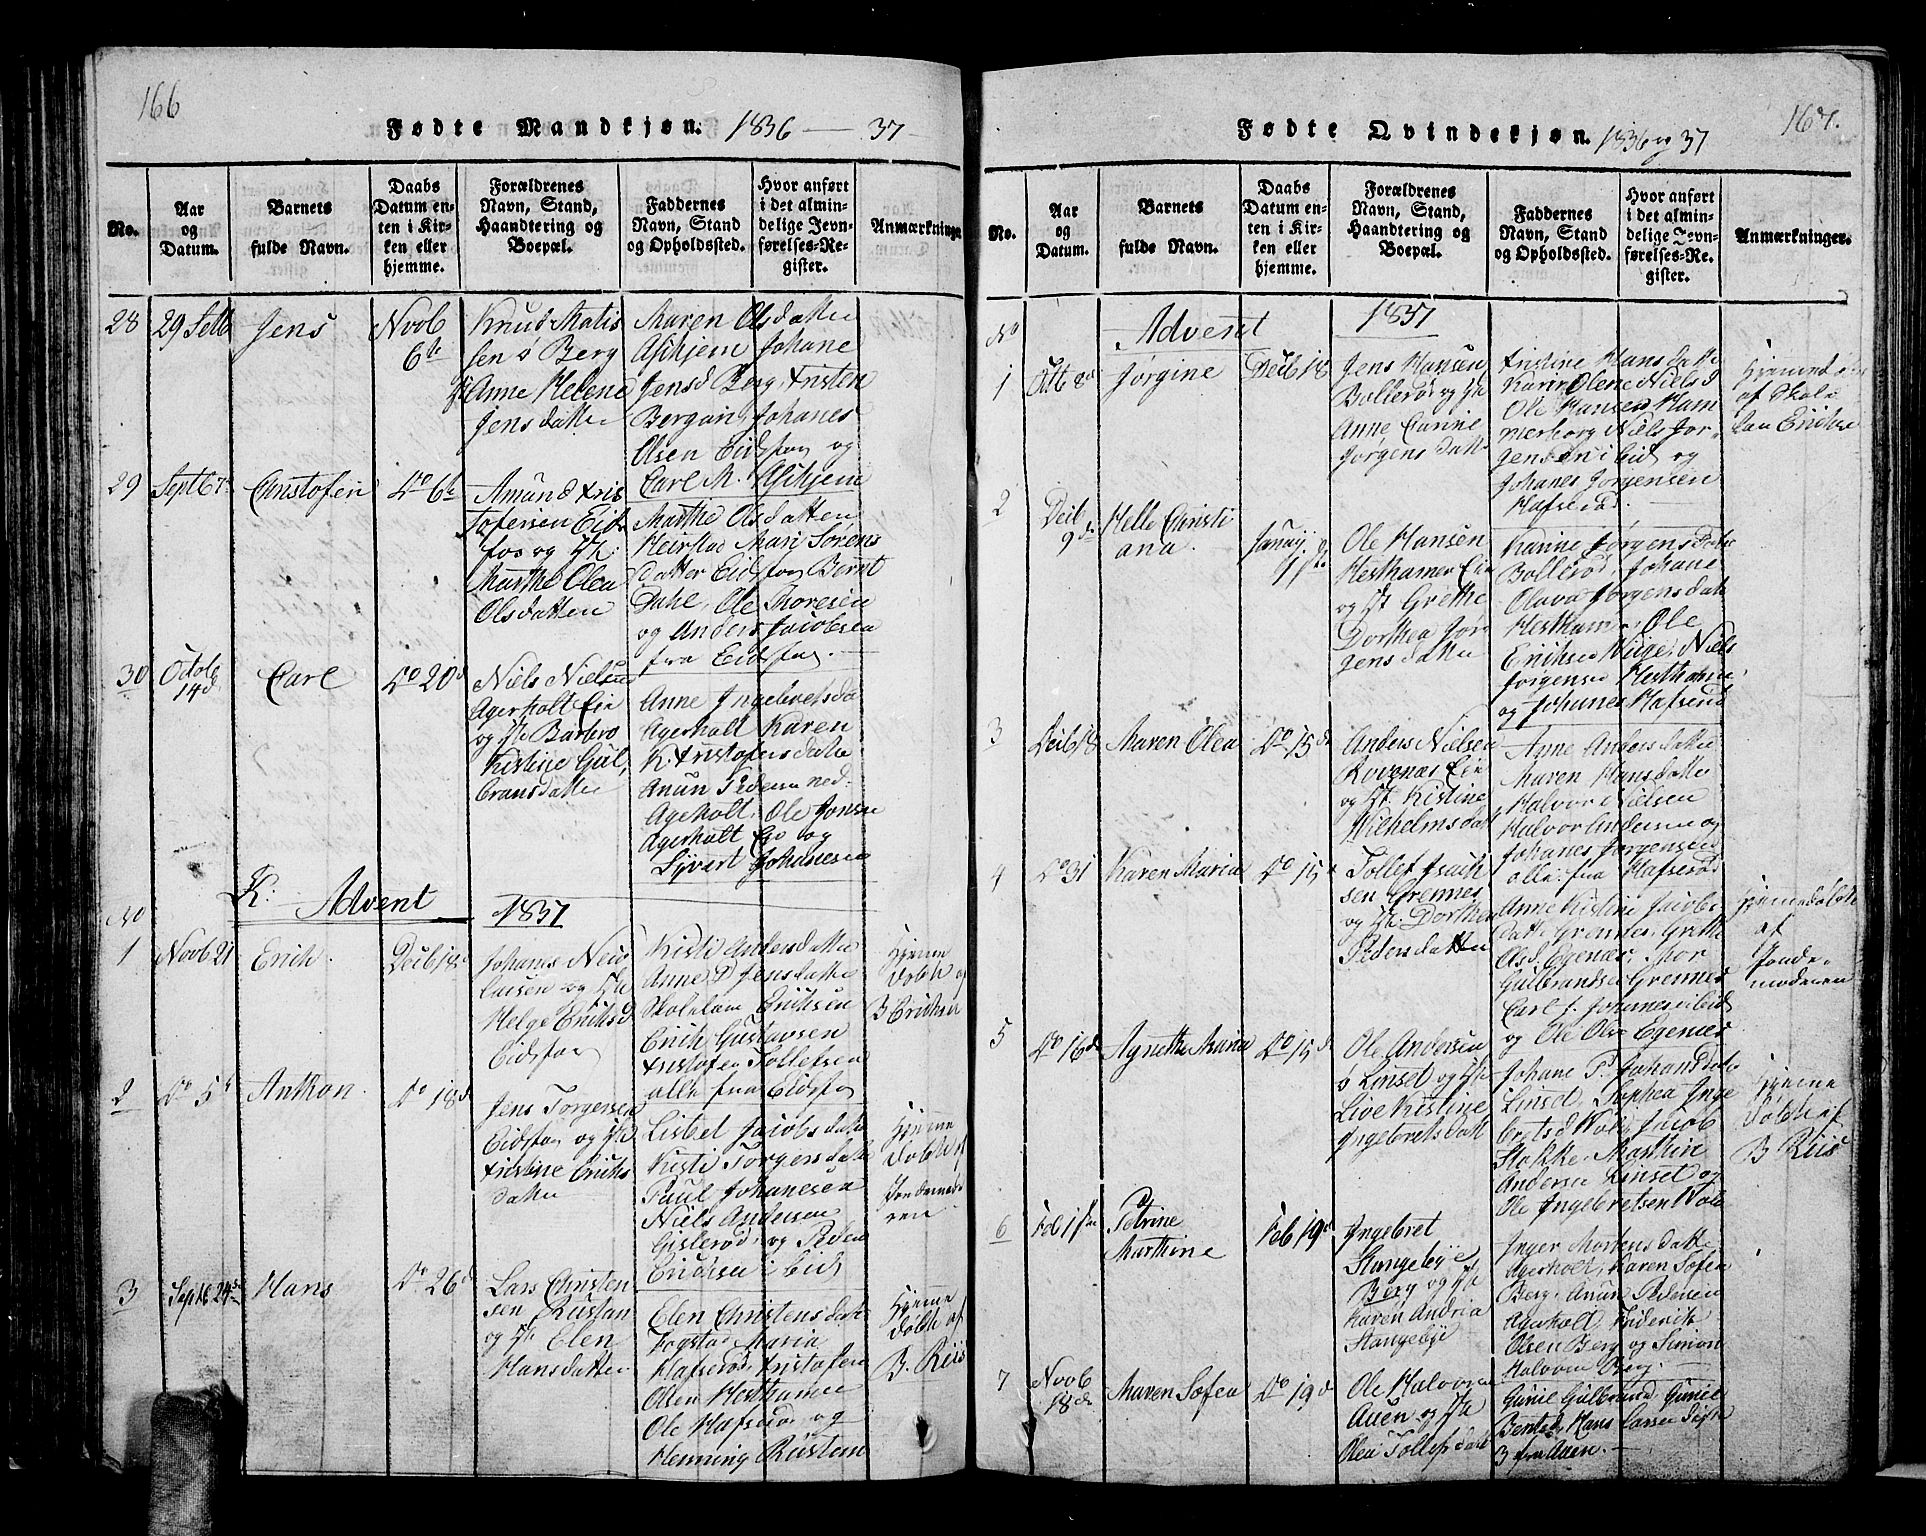 166
Fødte Mandkjøn. 1836 — 37
No.
Aar og Datum.
Barnets fulde Navn.
Daabs Datum enten i Kirken eller hjemme.
Forældrenes Navn, Stand, Haandtering og Boepæl.
Faddernes Navn, Stand og Opholdssted.
Hvor anført i det almindelige Jevnførelses-Register.
Anmærkninge
28
29 Sebt
Jens
Novb
6te
Knud Matis
sen ø Berg
Anne Helene
Jensdatter
Maren Olsdatter
Asihjem Johane
Jensd Berg, Kristen
Bergan, Johanes
Olsen Eidsfos og
Carl M. Asihjem
29
Septb 7de
Cristofen
do 6te
Amund Kris
tofersen Eids
fos og Hst:
Marthe Olea
Olsdatter
Marthe Olsdatter
Heirstad Mari Sørens
datter Eidsfos Bernt
Dahl, Ole Thoresen
og Anders Jacobsen
fra Eidsfos.
30
Octob
14d
Carl
do 20d
Niels Nielsen
Agerholt Eie
og Hst Barbro
Kistine Gul
bransdatter
Anne Ingebretsda
Agerholt Karen
Kristofersdatter
Anun Pedersen ned.
Agerholt, Ole Jonsen
Agerholt Eo og
Syvert Johanesen
K: Advent
1837
No
1
Novb 21
Erich
Decb 18
Johanes Neio
larsen og Hst
Helge Eriksd
Eidsfos
Kisti Andersdatter
Anne P Jensdatter
Skolelam Eriksen
Erich Gustavsen
Kristofer Tollefsen
alle fra Eidsfos
Hjemme
døbt af
B Erichsen
2
do 5t
Ankon.
do 18d
Jens Torgersen
Eidsfos og Hst
Kirstine Erichs
datter
Lisbet Jacobsdatter
Kisti Torgersdatter
Paul Johanesen
Niels Andersen
Gislerød, og Peder
Eriksen i Eid
Hjemme
døbt af
Jordemode
ren
3
Septb 24de
Hans
do 26d
Lars Christen
sen Rustan
og Hst Elen
Hansdatter
Elen Christensdatter
Fogstad Maria
Hafserød, Kristofen
Olsen Hesthamer
Ole Hafserød og
Henning Rustan
Hjemme
døbt af
B. Reis
167.
Fødte Qvindekjøn. 1836 og 37
No.
Aar og Datum.
Barnets fulde Navn.
Daabs Datum enten i Kirken eller hjemme.
Forældrenes Navn, Stand, Haandtering og Boepæl.
Faddernes Navn, Stand og Opholdssted.
Hvor anført i det almindelige Jevnførelses-Register.
Anmærkninger.
No
Advent
1837
1
Octb 8d
Jørgine
Decb 18
Jens Hansen
Bollerø og Hst
Anne Carine
Jørgensdatt
Kristine Hansdatter
Karen Olene Nielsd
Ole Hansen Ham
merborg Niels Jør
gensen i Eid og
Johanes Jørgensen
Hafserød.
Hjemmedøbt
af Skole
lær Erikse
2
Decb
9de
Helle Christi
ana.
Januaj.
1ste
Ole Hansen
Hesthamer Eie
og Hst Grethe
Dorthea Jør
gensdatter
Karine Jørgensdatter
Bollerød, Johane
Olava Jørgensdatt
Hestham. Ole
Eriksen Wiige, Niels
Jørgensen Hesthamer,
og Johanes Hafserød
3
Decb 18
Maren Olea
do 15d
Anders Nielsen
Rovenæs Eie
og Hst. Kistine
Wilhelmsdatt
Anne Andersdatter
Maren Hansdatter
Halvor Nielsen
Halvor Andersen og
Johanes Jørgensen
alle fra Hafserød
4
do 31
Karen Maria
do 15
Tollef Isach
sen Grennes
og Hst. Dorthea
Pedersdatter
Anne Kistine Jacobs
datter Grennes, Grethe
Olsd. Egenæs, Thor
Gulbrandsen Grennes
Carl J. Johannes i Eid
og Ole Ols Egenes
Hjemmedøbt
af
Jorde-
moderen
5
do 16de
Agnethe Maria
do 15d
Ole Andersen
ø Linset og Hst
Live Kistine
Ingebretsdatt
Johane P. Johansdatt
Linset, Sophea Inge
bretsd Wole, Jacob
Stokke, Marthin
Andersen Linset og
Ole Ingebretsen Wole
Hjemme
døbt af
B Reis
6
Feb 1ste
Petrine
Marthine
Feb 19d
Ingebret
Stangebye
Berg og Hst
Karen Andria
Stangebye
Inger Mortensdatter
Agerholt, Karen Sofea
Berg. Anun Pedersen
Agerholt Friderik
Olsen Berg og Simon
Halvorsen Berg.
7
Novb
18de
Maren Sofea
do 19d
Ole Halvorsen
Auen og Hst
Olea Tollefsdatt
Gunil Gulbrand, Gunil
Bentsd, Hans Larsen
3 fra Auen.